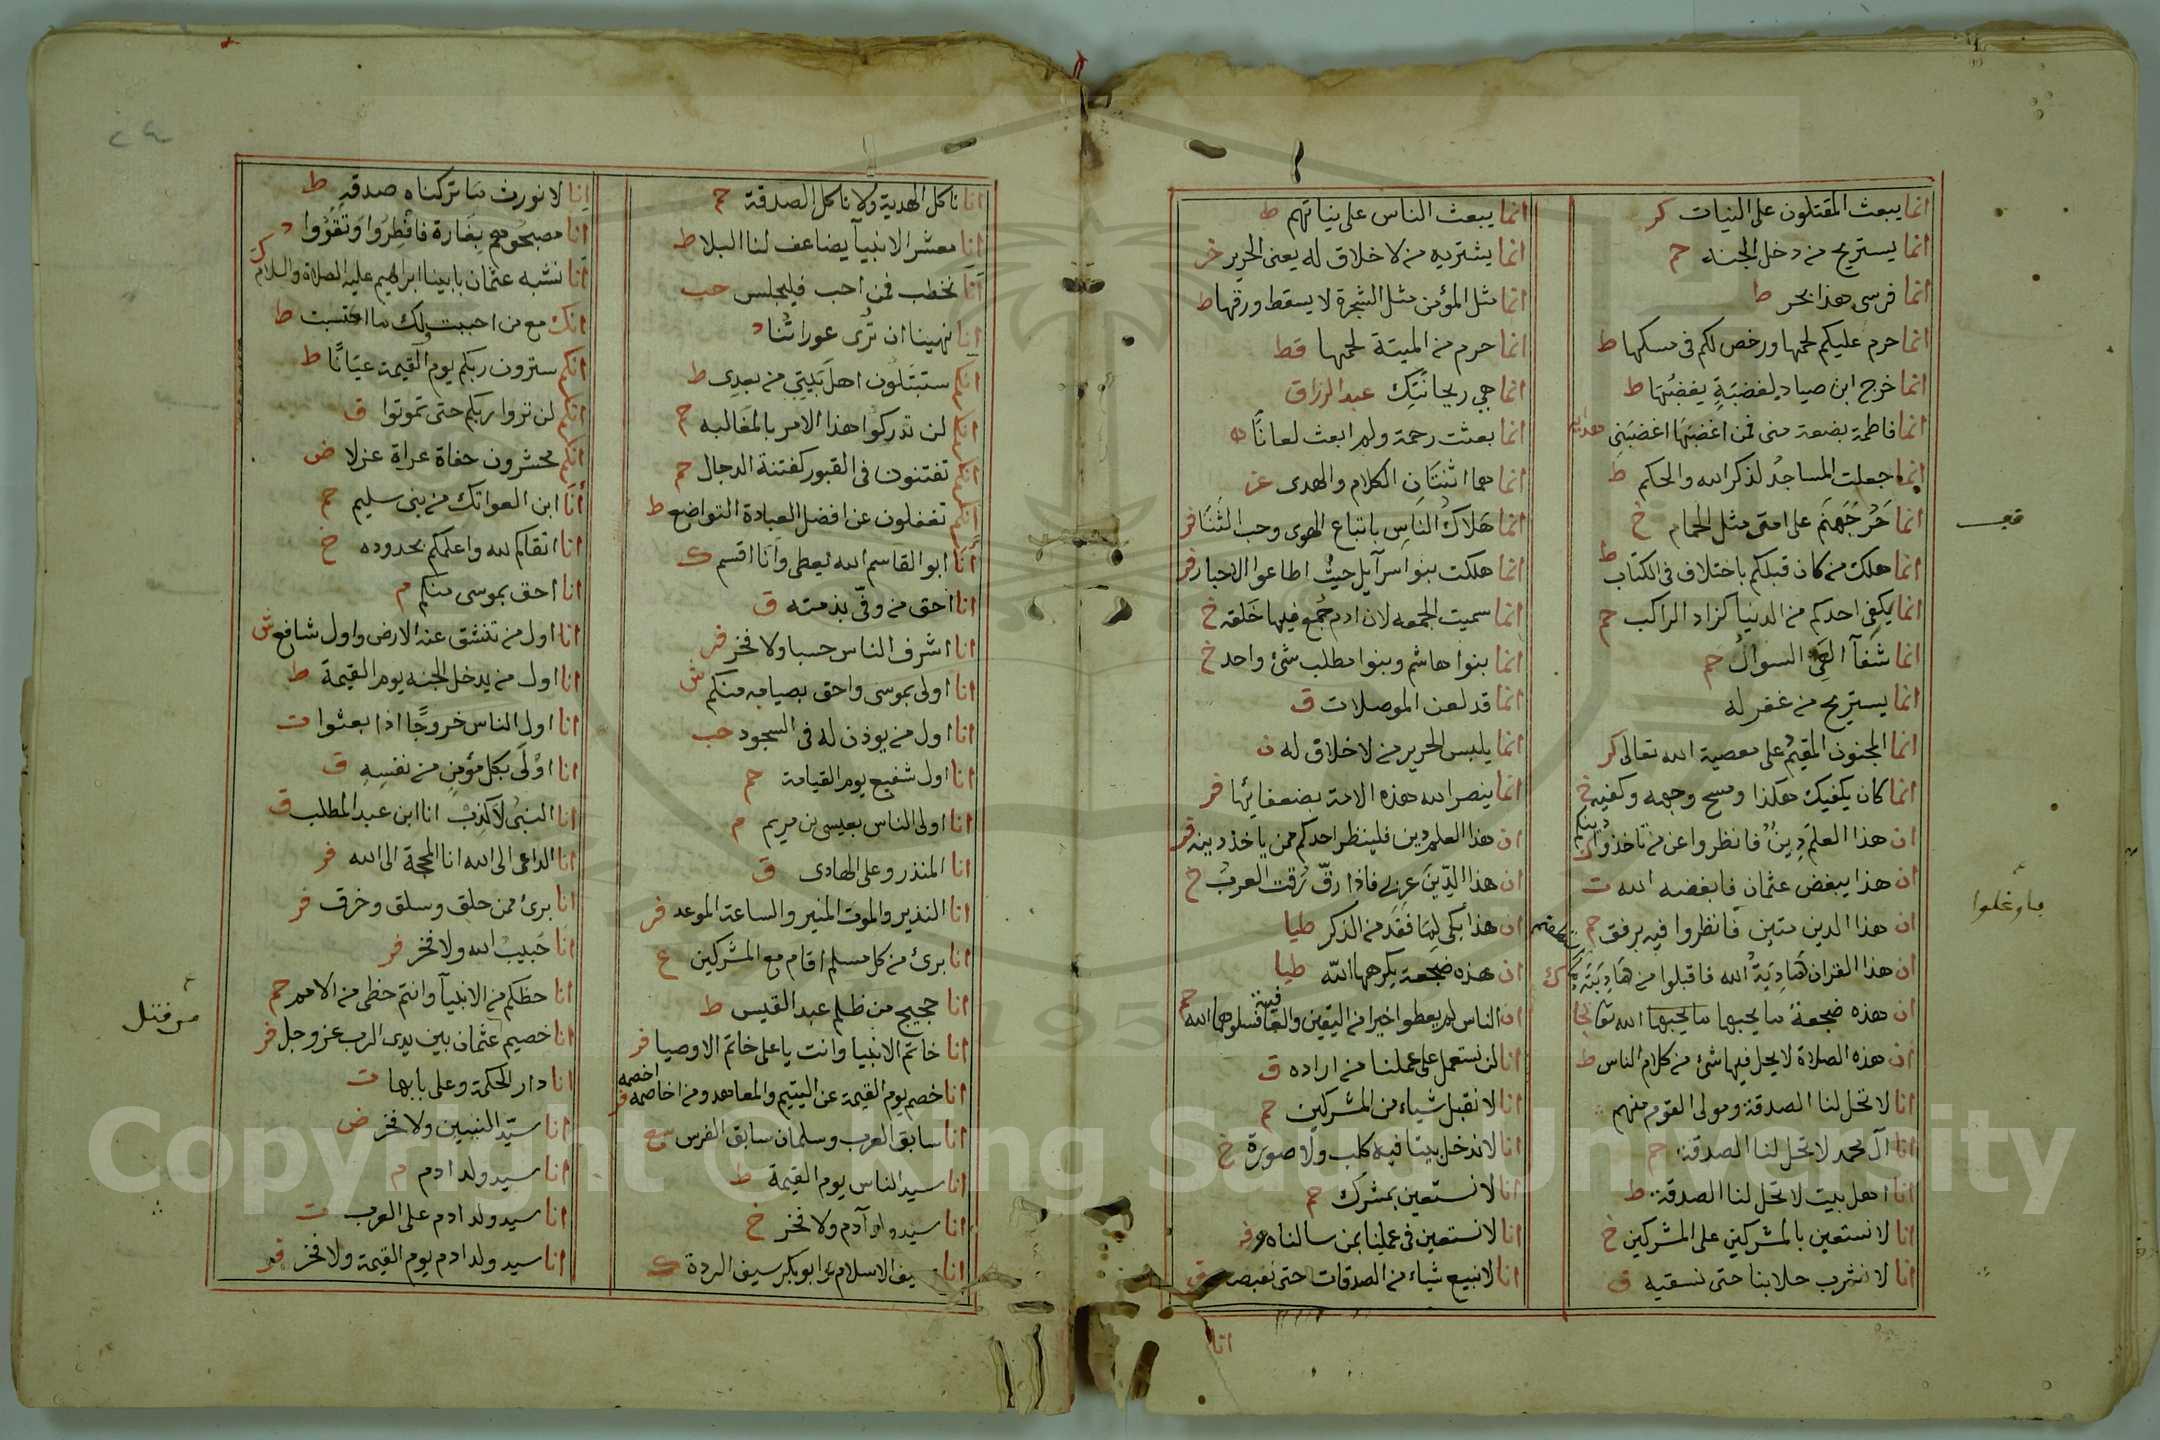 انما يبعث المقتلون على النيات كر
انما يستريح من دخل الجنه حم
انما فرسى هذا بحر ط
انما حرم عليكم لحمها ورخص لكم فى مسكها ط
انما خرج ابن صياد لغضبة يغضبها ط
انما فاطمة بضعة منى فمن اغضبها اغضبنى
انما جعلت المساجد لذكر الله والحكم ط
انما حر جهنم على امتى مثل الحمام خ
انما هلك من كان قبلكم باختلاف فى الكتاب ط
انما يكفى احدكم من الدنيا كزاد الراكب حم
انما شفآ العى السوال حم
انما يستريح من غفر له
انما المجنون المقيم على معصية الله تعالى كر
انما كان يكفيك هكذا ومسح وجهه وكفيه خ
ان هذا العلم دين فانظروا عن من تاخذوا دينكم ك
ان هذا يبغض عثمان فابغضه الله ت
ان هذا الدين متين فانظروا فيه برفق حم
ان هذا القران مادبة الله فاقبلوا من مادبته ك
ان هذه ضجعة ما يحبها ما يحبها الله تعالى
ان هذه الصلاة لا يحل فيها شئ من كلام الناس ط
انا لا تحل لنا الصدقة ومولى القوم منهم
انا آل محمد لا تحل لنا الصدقة حم
انا اهل بيت لا تحل لنا الصدقة ط
انا لا نستعين بالمشركين على المشركين خ
انا لا نشرب حلابنا حتى نسقيه ق
انما يبعث الناس على نياتهم ط
انما يشتريه من لا خلاق له يعنى الحرير خر
انما مثل المؤمن مثل الشجرة لا يسقط ورقها ط
انما حرم من الميتة لحمها قط
انما هى ريحانتك عبد الرزاق
انما بعثت رحمة ولم ابعث لعانا
انما هما اثنتان الكلام والهدى عز
انما هلاك الناس باتباع الهوى وحب الثنا فر
انما هلكت بنوا سرآيل حيث اطاعوا الاحبار فر
انما سميت الجمعه لان ادم جمع فيها خلقه خ
انما بنوا هاشم وبنوا مطلب شئ واحد خ
انما قد لعن الموصلات ق
انما يلبس الحرير من لا خلاق له ن
انما ينصر الله هذه الامة بضعفائها فر
ان هذا العلم دين فلينظر احدكم ممن ياخذ دينه فر
ان هذا الدين عربى فاذا رق رقت العرب خ
ان هذا بكى لما فقد من الذكر طيا
ان هذه ضجعة يكرهها الله طيا
ان الناس لم يعطوا خيرا من اليقين والعافية فسلوهما الله حم
انا لن نستعمل على عملنا من اراده ق
انا لا نقبل شياء من المشركين حم
انا لا ندخل بيتا فيه كلب ولا صورة خ
انا لا نستعين بمشرك حم
انا لا نستعين فى عملنا بمن سالناه فر
انا لا نبيع شياء من الصدقات حتى نقبضه ق
انا
فاوغلوا
انا ناكل الهدية ولا ناكل الصدقة حم
انا معشر الانبيآ يضاعف لنا البلا ط
انا نخطب فمن احب فليجلس حب
انا نهينا ان ترى عوراتنا
انكم ستبتلون اهل بيتى من بعدى ط
انكم لن تدركوا هذا الامر بالمغالبه حم
انكم تفتنون فى القبور كفتنة الدجال حم
انكم تغفلون عن افضل العبادة التواضع ط
انا ابو القاسم الله يعطى وانا اقسم ك
انا احق من وفى بذمته ق
انا اشرف الناس حسبا ولا فخر فر
انا اولى بموسى واحق بصيامه منكم ش
انا اول من يوذن له فى السجود حب
انا اول شفيع يوم القيامة حم
انا اولى الناس بعيسى بن مريم م
انا المنذر وعلى الهادى ق
انا النذير والموت المغير والساعة الموعد فر
انا برئ من كل مسلم اقام مع المشركين ع
انا حجيج من ظلم عبد القيس ط
انا خاتم الانبيا وانت يا على خاتم الاوصيا فر
انا خصم يوم القيمة عن اليتيم والمعاهد ومن اخاصمه اخصمه فر
انا سابق العرب وسلمان سابق الفرس
انا سيد الناس يوم القيمة ط
انا سيد ولد آدم ولا فخر خ
انا سيف الاسلام وابو بكر سيف الردة ك
انا لا نورث ما تركناه صدقة ط
انا مصبحوهم بغارة فافطروا وتقووا
انا نشبه عثمان بابينا ابراهيم عليه الصلاة والسلام
انك مع من احببت ولك ما احتسبت ط
انكم سترون ربكم يوم القيمة عيانا ط
انكم لن تروا ربكم حتى تموتوا ق
انكم محشرون حفاة عراة عزلا ض
أنا ابن العواتك من بنى سليم حم
انا اتقاكم لله واعلمكم بحدوده خ
انا احق بموسى منكم م
انا اول من تنشق عنه الارض واول شافع ش
انا اول من يدخل الجنه يوم القيمة ط
انا اول الناس خروجا اذا بعثوا ت
انا اولى بكل مؤمن من نفسه ق
انا النبى لا كذب انا ابن عبد المطلب ق
انا الداعى الى الله انا المحجة الى الله فر
انا برئ ممن حلق وسلق وخرق فر
انا حبيب الله ولا فخر فر
انا حظكم من الانبيآ وانتم حظى من الامم حم
انا خصيم عثمان بين يدى الرب عز وجل فر
انا دار الحكمة وعلى بابها ت
انا سيد النبيين ولا فخر ض
انا سيد ولد ادم م
انا سيد ولد ادم على العرب ت
انا سيد ولد ادم يوم القيمة ولا فخر فر
Copyright © King Saud University